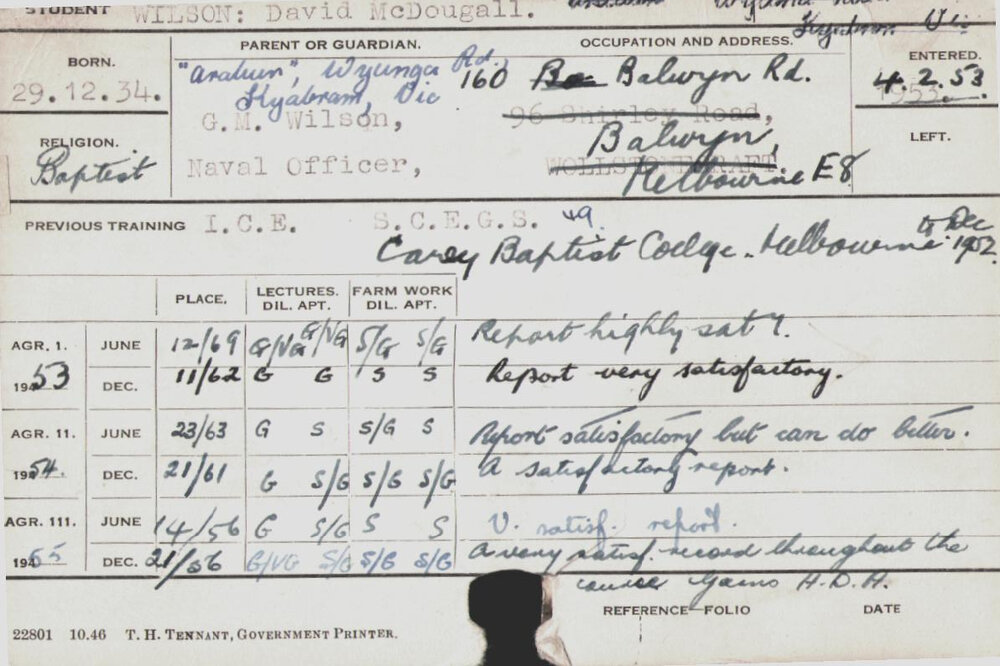 STUDENT WILSON: David McDougall.
Kyabram Vic
BORN. PARENT OR GUARDIAN. OCCUPATION AND ADDRESS. ENTERED.
29.12.34. "Arahun", Wyunga Rd., 160 Balwyn Rd. 4.2.53
Kyabram, Vic
G.M. Wilson, 96 Shirley Road, 1953
RELIGION. Balwyn, LEFT.
Baptist Naval Officer, WOLLSTONECRAFT
Melbourne E8
PREVIOUS TRAINING I.C.E. S.C.E.G.S. 49.
Carey Baptist College. Melbourne to Dec 1952.
PLACE. LECTURES. FARM WORK
DIL. APT. DIL. APT.
AGR. 1. JUNE 12/69 G/VG G/VG S/G S/G Report highly sat y.
1953 DEC. 11/62 G G S S Report very satisfactory.
AGR. 11. JUNE 23/63 G S S/G S Report satisfactory but can do better.
1954. DEC. 21/61 G S/G S/G S/G A satisfactory report.
AGR. 111. JUNE 14/56 G S/G S S V. satisf. report.
1955 DEC. 21/56 G/VG S/G S/G S/G A very satisf. record throughout the
course Gains H.D.A.
REFERENCE—FOLIO DATE
22801 10.46 T. H. TENNANT, GOVERNMENT PRINTER.